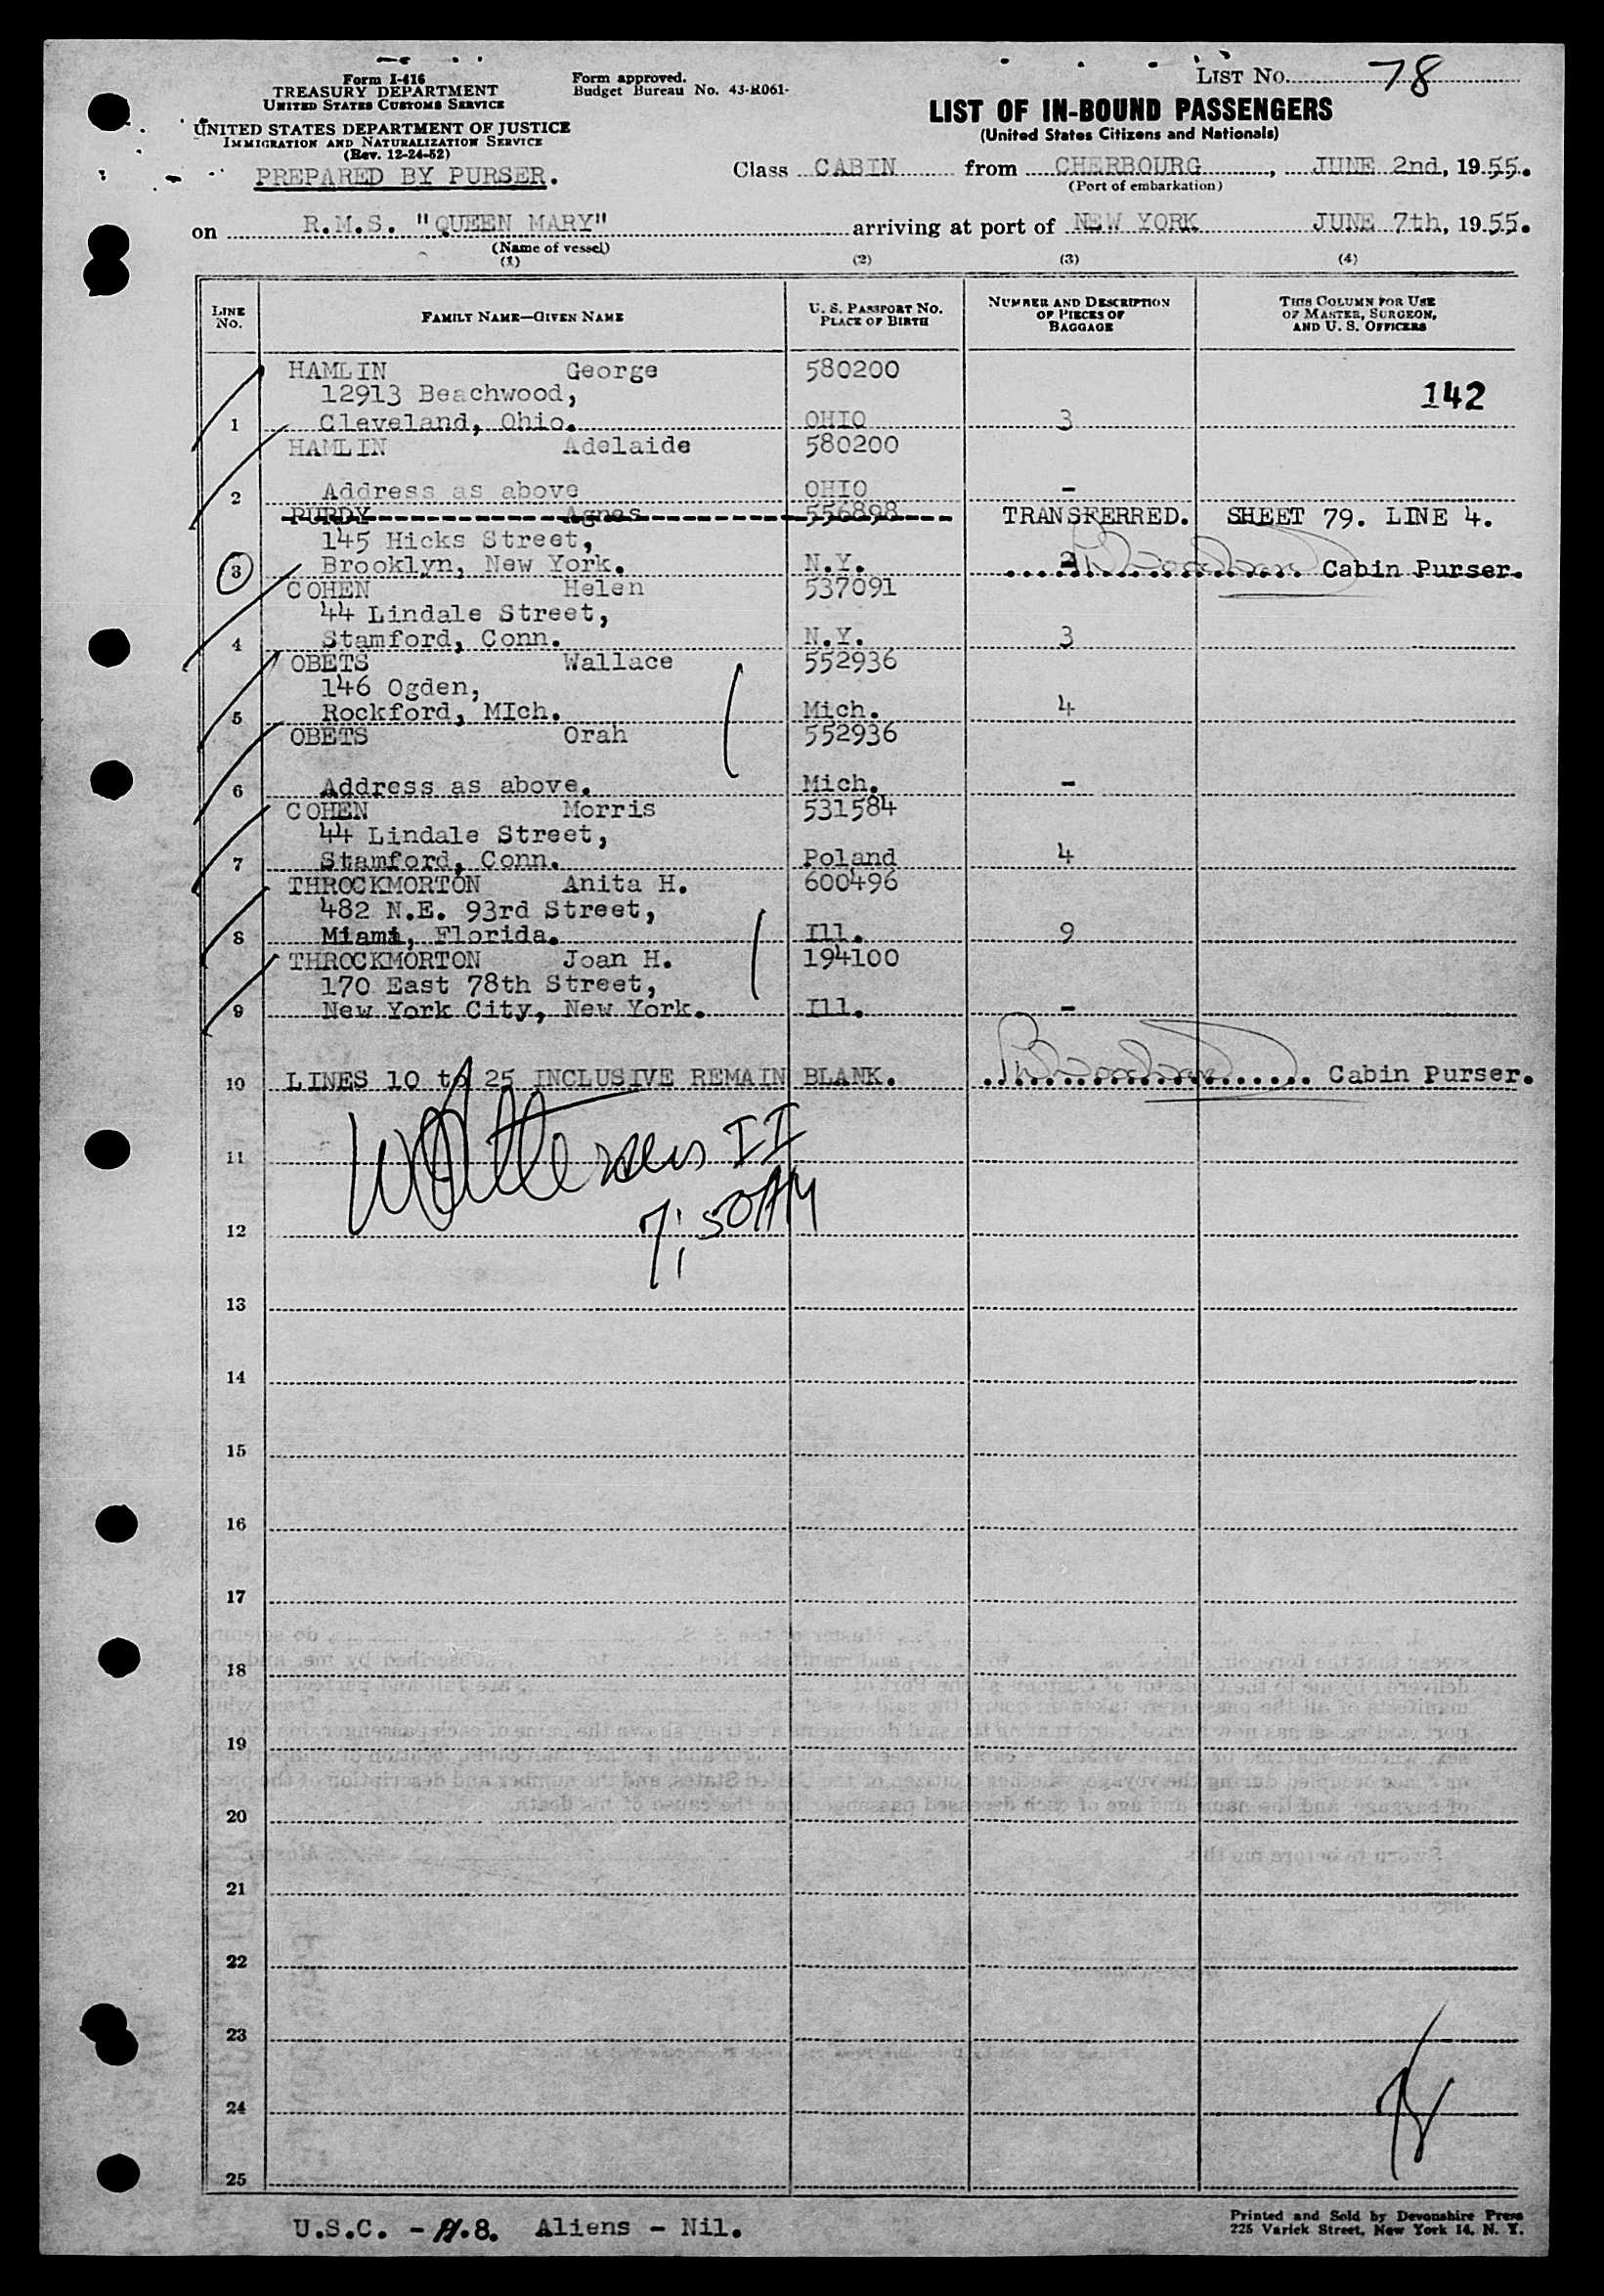 Form I-416
TREASURY DEPARTMENT
UNITED STATES CUSTOMS SERVICE
UNITED STATES DEPARTMENT OF JUSTICE
IMMIGRATION AND NATURALIZATION SERVICE
(Rev. 12-24-52)
PREPARED BY PURSER.
Form approved.
Budget Bureau No. 43-R061-
LIST NO. 78
LIST OF IN-BOUND PASSENGERS
(United States Citizens and Nationals)
Class CABIN from CHERBOURG, JUNE 2nd, 1955.
(Port of embarkation)
on R.M.S. "QUEEN MARY" arriving at port of NEW YORK JUNE 7th, 1955.
(Name of vessel)
(1) (2) (3) (4)
LINE NO. FAMILY NAME—GIVEN NAME U. S. PASSPORT NO. PLACE OF BIRTH NUMBER AND DESCRIPTION OF PIECES OF BAGGAGE THIS COLUMN FOR USE OF MASTER, SURGEON, AND U. S. OFFICERS
HAMLIN George 580200
12913 Beachwood, 142
1 Cleveland, Ohio. OHIO 3
HAMLIN Adelaide 580200
2 Address as above OHIO -
PURDY Agnes 556898 TRANSFERRED. SHEET 79. LINE 4.
145 Hicks Street,
3 Brooklyn, New York. N.Y. Cabin Purser.
COHEN Helen 537091
44 Lindale Street,
4 Stamford, Conn. N.Y. 3
OBETS Wallace 552936
146 Ogden,
5 Rockford, MIch. Mich. 4
OBETS Orah 552936
6 Address as above. Mich. -
COHEN Morris 531584
44 Lindale Street,
7 Stamford, Conn. Poland 4
THROCKMORTON Anita H. 600496
482 N.E. 93rd Street,
8 Miami, Florida. Ill. 9
THROCKMORTON Joan H. 194100
170 East 78th Street,
9 New York City, New York. Ill. -
10 LINES 10 to 25 INCLUSIVE REMAIN BLANK. Cabin Purser.
11 II
12 7:50AM
13
14
15
16
17
18
19
20
21
22
23
24
25
U.S.C. - 8. Aliens - Nil.
Printed and Sold by Devonshire Press
225 Varick Street, New York 14, N. Y.